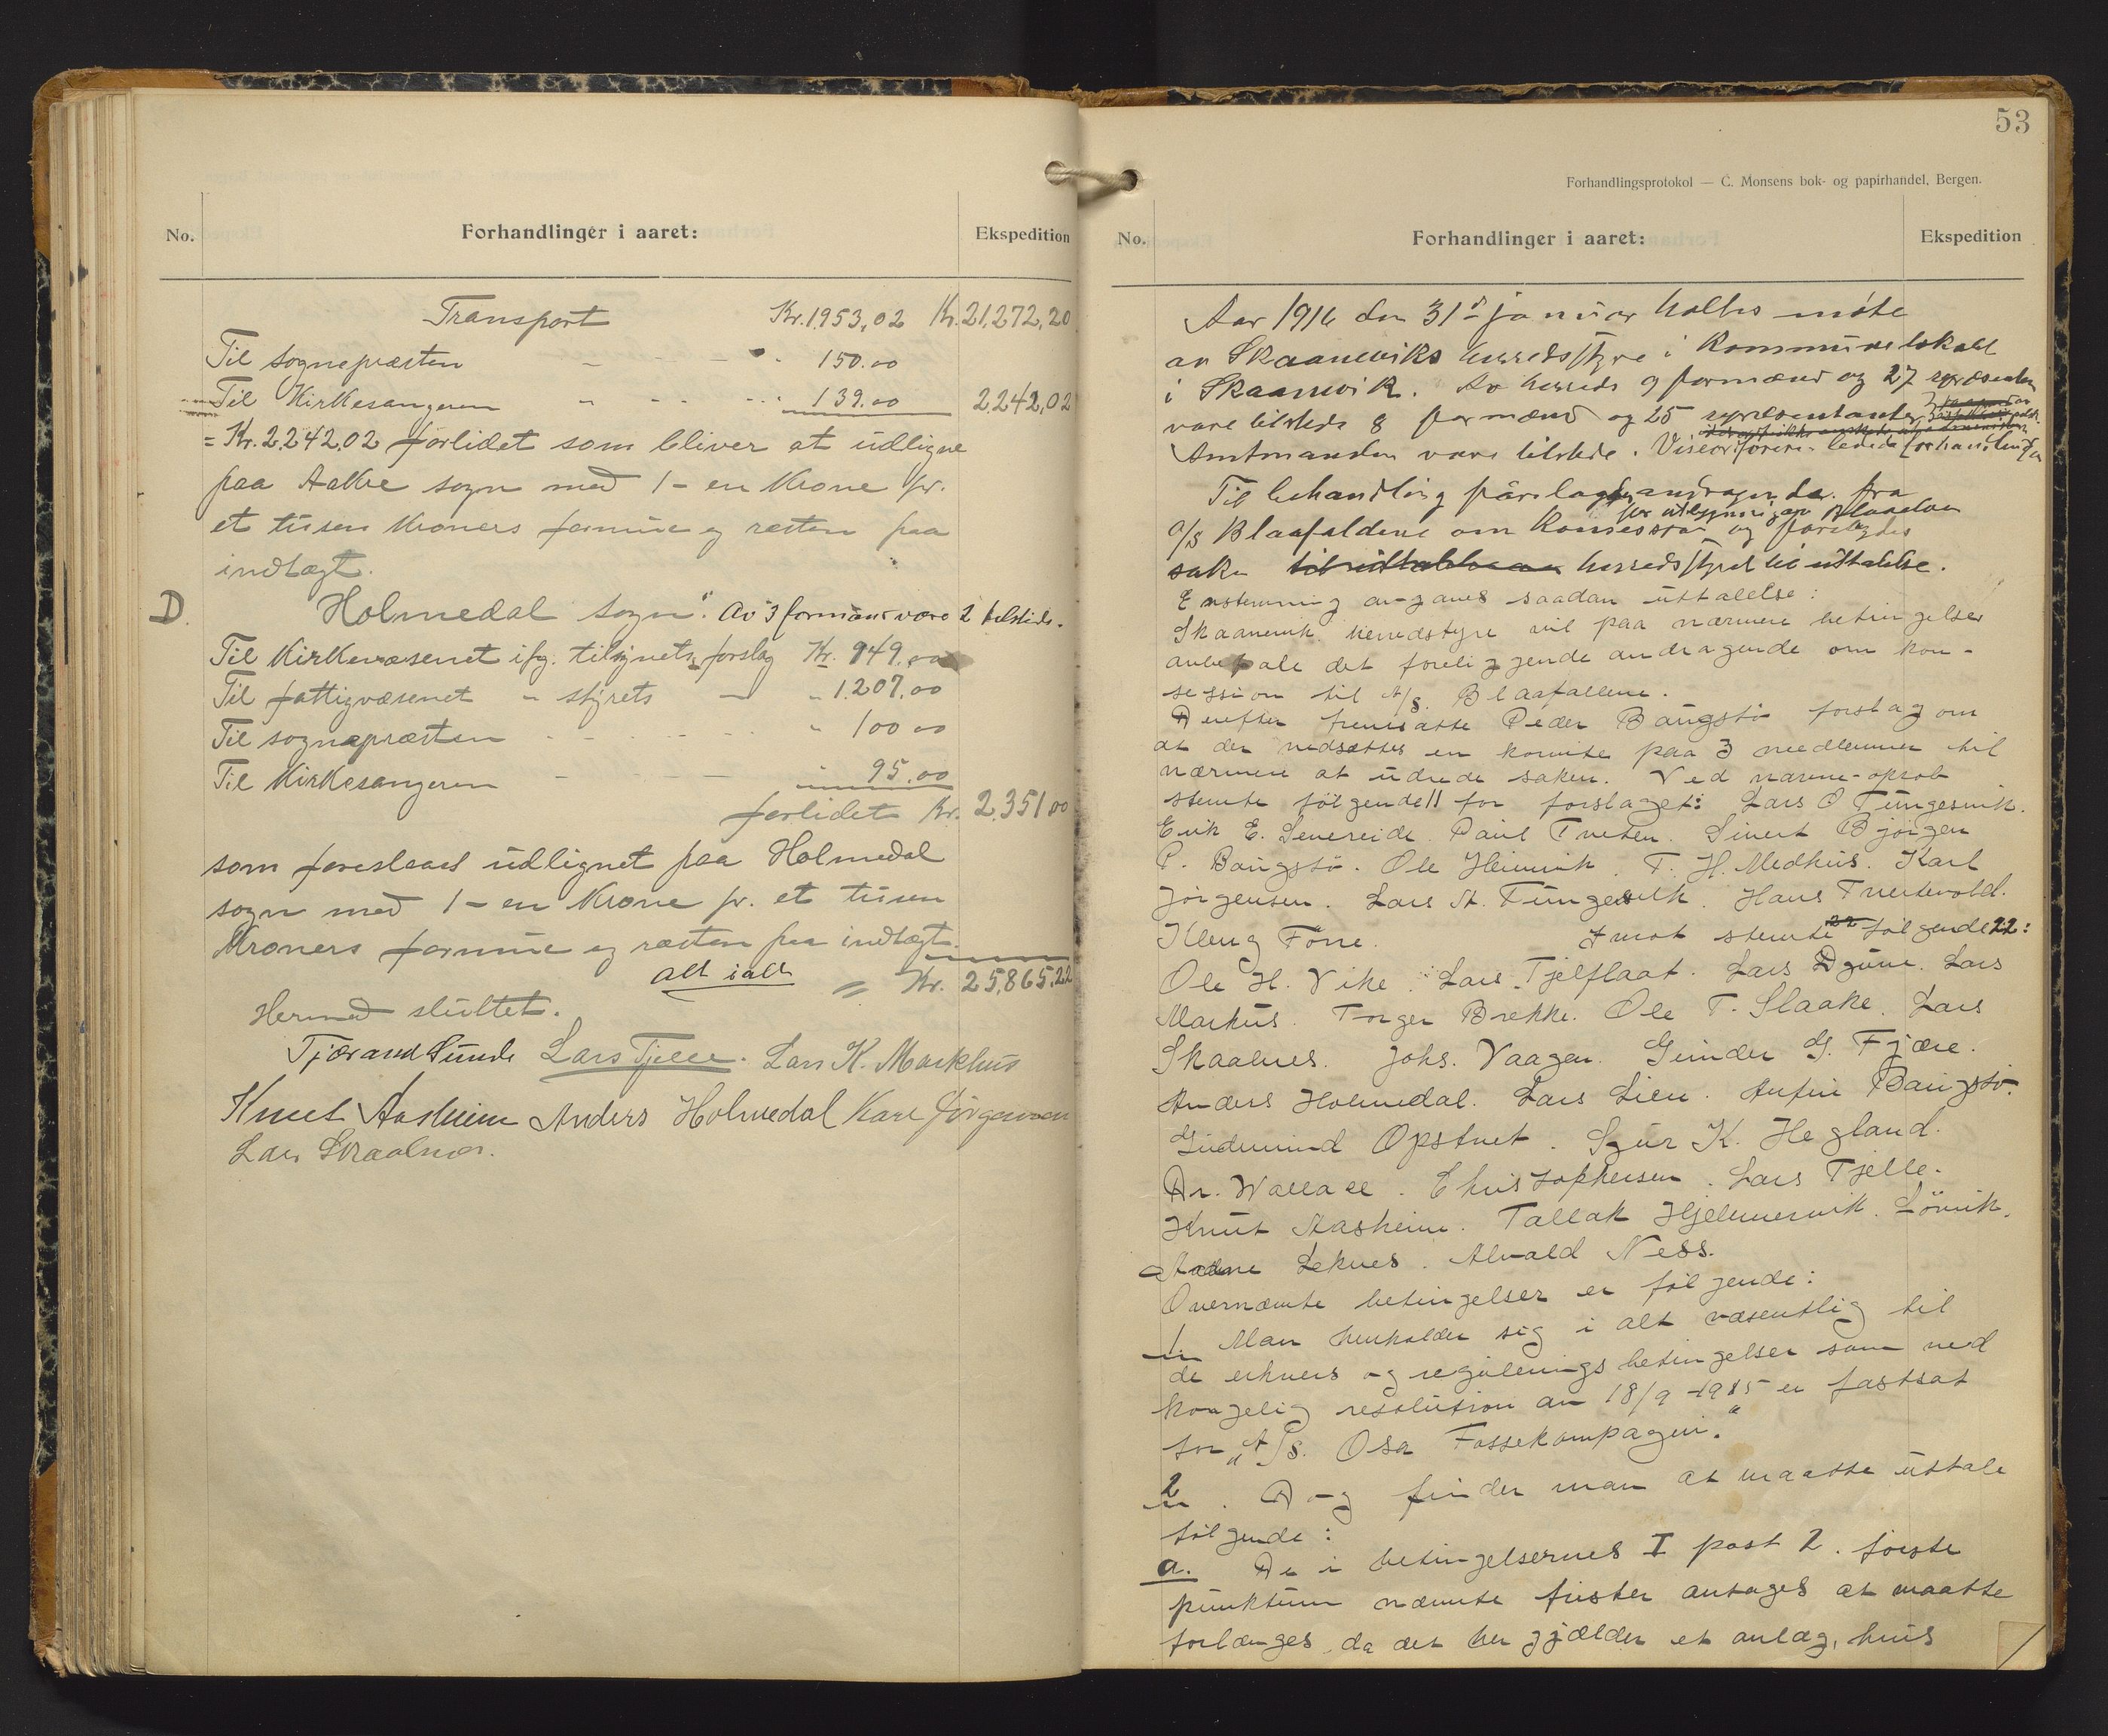 No.
Forhandlinger i aaret:
Ekspedition
Transport Kr. 1953,02 Kr. 21,272,20
Til sognepræsten - - - - 150.00
Til Kirkesangeren " - - - 139.00 2,242,02
= Kr. 2,242,02 forlidet som bliver at udligne
paa Aakre sogn med 1 - en Krone pr.
et tusen Kroners formue og resten paa
indtægt.
D. Holmedal sogn". Av 3 formænd vare 2 tilstede.
Til Kirkevæsenet ifg. tilsynets forslag Kr. 949,00
Til fattigvæsenet " styrets — " 1.207,00
Til sognepræsten - - - - " 100 00
Til Kirkesangeren - - " 95.00
forlidet Kr. 2,351 00
som foreslaaes udlignet paa Holmedal
sogn med 1 - en Krone pr. et tusen
Kroners formue og resten paa indtægt.
alt ialt = Kr. 25,865,22
Hermed sluttet.
Tjærand Sunde Lars Tjelle. Lars K. Markhus
Knut Aasheim Anders Holmedal Karl Jørgensen
Lars Skaalnes.
53
Forhandlingsprotokol — C. Monsens bok- og papirhandel, Bergen.
No.
Forhandlinger i aaret:
Ekspedition
Aar 1916 den 31te januar holtes møte
av Skaaneviks herredsstyre i Kommunelokalet
i Skaanevik. Av herreds 9 formænd og 27 repræsentanter
vare tilstede 8 formænd og 25 repræsentanter
Amtmanden vare tilstede. Viseordfører ledede forhandlingen
Til behandling forelaa andragender fra
for utbygning av Blaaelven
A/S Blaafaldene om Konsession og forelagdes
saken herredsstyret til uttalelse.
Enstemmig avgaves saadan uttalelse:
Skaanevik herredstyre vil paa nærmere betingelser
anbefale det foreliggende andragende om kon-
session til A/S. Blaafallene.
Derefter fremsatte Peder Baugstø forslag om
at der nedsættes en komite paa 3 medlemmer til
nærmere at utrede saken. Ved navne-oprob
stemte følgende 11 for forslaget: Lars O Tungesvik.
Erik E. Severeide. Paul Tveten. Sivert Bjørgen
P. Baugstø. Ole Heimvik. T. H. Medhus. Karl
Jørgensen. Lars A. Tungesvik. Hans Tveitevold.
Kleng Tonne. Imot stemte følgende 22:
Ole H. Vike. Lars Tjelflaat. Lars Djuve. Lars
Markus. Torger Brekke. Ole T. Slaake. Lars
Skaalnes. Johs. Vaagen. Gunder G. Fjære.
Anders Holmedal. Lars Lien. Anfin Baugstø.
Gudmund Opstvet. Sjur K. Hegland.
Dr. Wallace. Christophersen. Lars Tjelle.
Knut Aasheim. Tallak Hjelmervik. Lönvik.
Aadne Leknes. Alvald Ness.
Overnæmte betingelser er følgende:
1 Man henholder sig i alt væsentlig til
de erhvervs og regulerings betingelser som ved
kongelig resolution av 18/9 - 1915 er fastsat
for „A/S. Osa Fossekompagni."
2. Dog finder man at maatte uttale
følgende:
a. De i betingelsernes I post 2. første
punktum nævnte frister antages at maatte
forlænges, da det her gjælder et anlæg, hvis